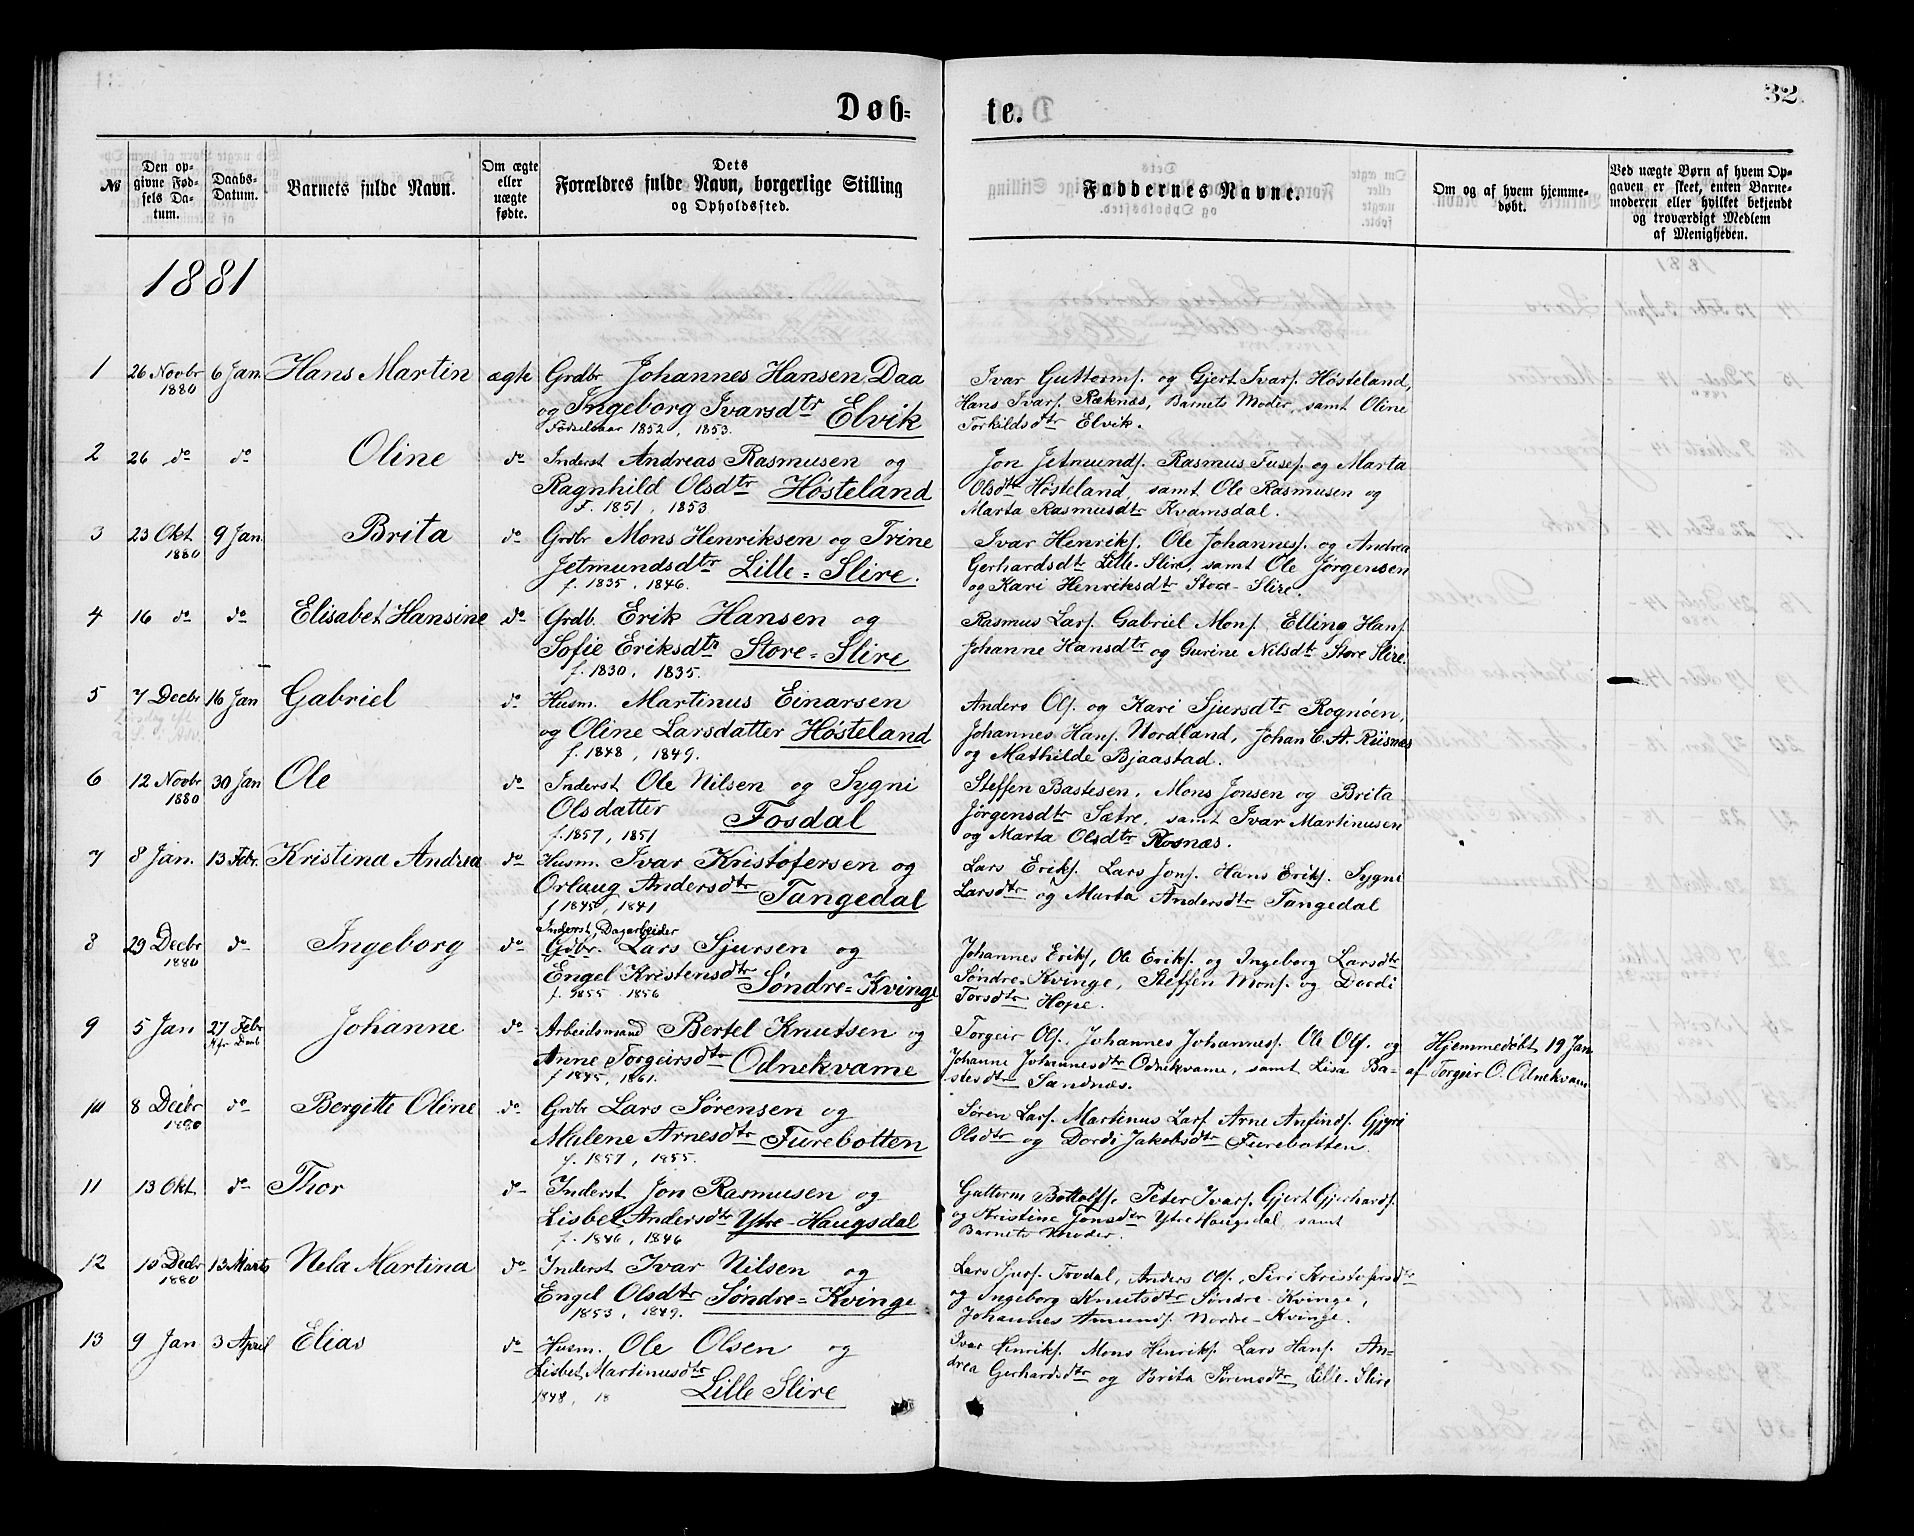 Døb=
te.
32.
№
Den opgivne Fødsels Datum.
Daabs-Datum.
Barnets fulde Navn.
Om ægte eller uægte fødte.
Dets Forældres fulde Navn, borgerlige Stilling og Opholdssted.
Faddernes Navne.
Om og af hvem hjemmedøbt.
Ved uægte Børn af hvem Opgaven er skeet, enten Barnemoderen eller hvilket bekjendt og troværdigt Medlem af Menigheden.
1881
1 26 Novbr 6 Jan Hans Martin ægte Grdbr Johannes Hansen Daa
1880 og Ingeborg Ivarsdtr Elvik
Fødselsaar 1852, 1853.
Ivar Guttorms. og Gjert Ivars. Høsteland,
Hans Ivars. Ræknæs, Barnets Moder, samt Oline
Torkildsdtr Elvik.
2 26 do do Oline do Inderst Andreas Rasmusen og
Ragnhild Olsdtr Høsteland
F. 1851, 1853
Jon Jetmunds. Rasmus Tuses. og Marta
Olsdtr Høsteland, samt Ole Rasmusen og
Marta Rasmusdtr Kvamsdal.
3 23 Okt 9 Jan Brita do Grdbr Mons Henriksen og Trine
1880 Jetmundsdtr Lille=Slire.
f. 1835, 1846.
Ivar Henriks. Ole Johannes. og Andrea
Gerhardsdtr Lille-Slire, samt Ole Jørgensen
og Kari Henriksdtr Store-Slire.
4 16 do do Elisabet Hansine do Grdb. Erik Hansen og
Sofie Eriksdtr Store=Slire
f. 1830, 1835.
Rasmus Lars. Gabriel Mons. Elling Hans.
Johanne Hansdtr og Gurine Nilsdt Store Slire.
5 7 Decbr 16 Jan Gabriel do Husm. Martinus Einarsen
og Oline Larsdatter Høsteland
f. 1848, 1849.
Anders Ols. og Kari Sjursdtr Rognøen,
Johannes Hans. Nordland, Johan C. A. Riisnæs
og Mathilde Bjaastad.
6 12 Novbr 30 Jan Ole do Inderst Ole Nilsen og Sygni
1880 Olsdatter Fosdal
f. 1857, 1851
Steffen Bastesen, Mons Jonsen og Brita
Jørgensdtr Sætre, samt Ivar Martinusen
og Marta Olsdtr Rosnæs.
7 8 Jan. 13 Febr. Kristina Andrea do Husm. Ivar Kristofersen og
Orlaug Andersdtr Tangedal
f 1845, 1841
Lars Eriks. Lars Jons. Hans Eriks. Sygni
Larsdtr og Marta Andersdtr Tangedal
8 29 Decbr do Ingeborg do Inderst, Dagarbeider
1880 Grdbr. Lars Sjursen og
Engel Kristensdtr Søndre=Kvinge
f. 1855. 1856
Johannes Eriks, Ole Eriks. og Ingeborg Larsdtr
Søndre-Kvinge, Steffen Mons. og Dordi
Torsdtr Hope.
9 5 Jan 27 Febr Johanne do Arbeidsmand Bertel Knutsen og
Anne Torgeirsdtr Odnekvame
f 1845, 1861.
Torgeir Ols. Johannes Johannes. Ole Ols. og
Johanne Johannesdtr Odnekvame, samt Lisa Ba-
stesdtr Sandnæs.
Hjemmedøbt 19 Jan
af Torgeir O. Odnekvam
10 8 Decbr do Bergitte Oline do Grdbr Lars Sørensen og
1880 Malene Arnesdtr Furebotten
f. 1857, 1855.
Søren Lars. Martinus Lars. Arne Anfinds. Gjyri
Olsdtr og Dordi Jakobsdtr Furebotten.
11 13 Okt do Thor do Inderst Jon Rasmusen og
Lisbet Andersdtr Ytre-Haugsdal
f. 1846, 1846
Guttorm Bottolfs. Peter Ivars. Gjert Gjerhards.
og Kristine Jonsdtr Ytre Haugsdal samt
Barnets Moder.
12 10 Decbr 13 Marts Nela Martina do Inderst Ivar Nilsen og
1880 Engel Olsdtr Søndre=Kvinge
1853, 1849.
Lars Sjurs. Fosdal, Anders Ols, Siri Kristofersdtr
og Ingeborg Knutsdtr Søndre-Kvinge,
Johannes Amunds. Nordre-Kvinge.
13 9 Jan 3 April Elias do Husm. Ole Olsen og
Lisbet Martinusdtr
1848, 18 Lille Slire
Ivar Henriks. Mons Henriks. Lars Hans. An-
drea Gerhardsdtr og Brita Sørensdtr Lille-Slire